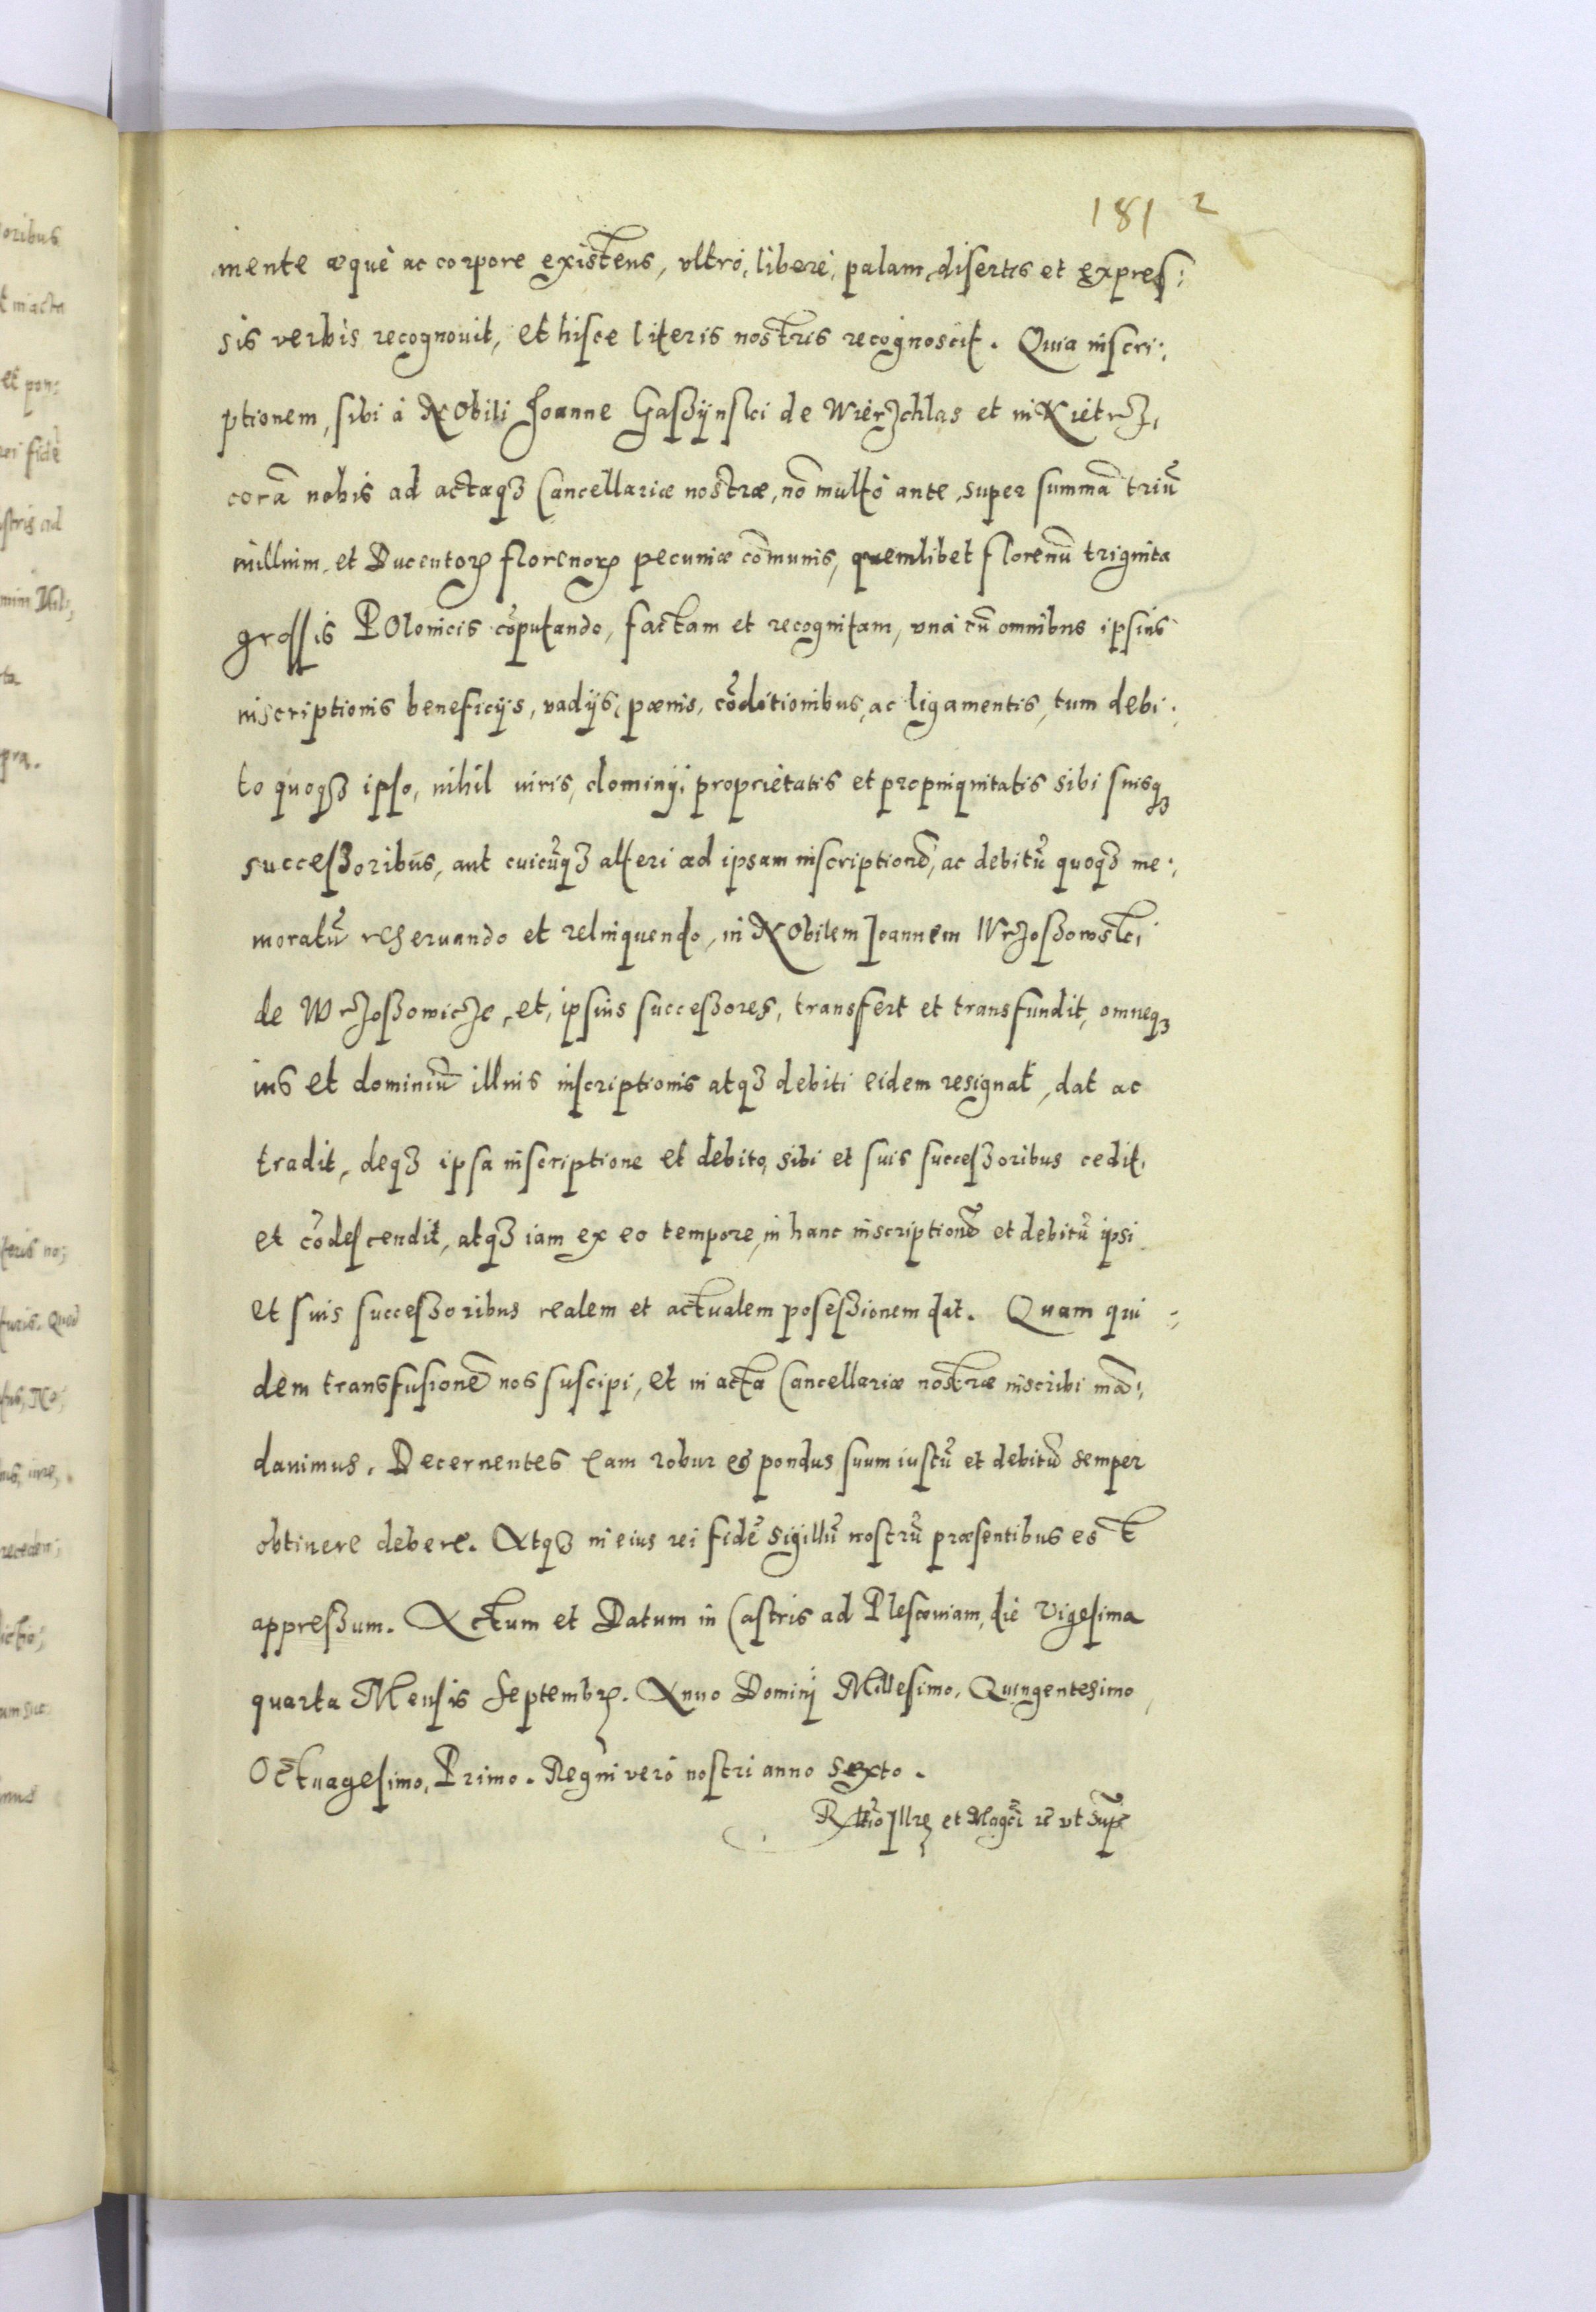 181 2
mente æquè ac corpore existens, vltrò, liberè, palam, disertis et expres:
sis verbis recognouit, et hisce literis nostris recognoscit. Quia inscri:
ptionem, sibi à Nobili Joanne Gaßÿnski de Wierzchlas et in Kietrz,
corā nobis ad actaqȝ Cancellariæ nostræ, nō multò ante, super summā triū
millium, et Ducentorꝝ florenorꝝ pecuniæ cōmunis, quemlibet florenū triginta
grossis Polonicis cōputando, factam et recognitam, vnà cū omnibus ipsius
inscriptionis beneficijs, vadijs, pœnis, cōditionibus, ac ligamentis, tum debi:
to quoqȝ ipso, nihil iuris, dominij, proprietatis et propinquitatis sibi suisqȝ
successoribus, aut cuicūqȝ alteri ad ipsam inscriptionē, ac debitū quoqȝ me:
moratū reseruando et relinquendo, in Nobilem Joannem Wrzoßowski
de Wrzoßowicze, et, ipsius successores, transfert et transfundit, omneqȝ
ius et dominiū illius inscriptionis atqȝ debiti eidem resignat, dat ac
tradit, deqȝ ipsa inscriptione et debito, sibi et suis successoribus cedit,
et cōdescendit, atqȝ iam ex eo tempore, in hanc inscriptionē et debitū ipsi
et suis successoribus realem et actualem posessionem dat. Quam qui:
dem transfusionē nos suscipi, et in acta Cancellariæ nostræ inscribi mā:
dauimus. Decernentes eam robur et pondus suum iustū et debitū semper
obtinere debere. Atqȝ in eius rei fidē sigillū nostrū præsentibus est
appressum. Actum et Datum in Castris ad Plescouiam, die Vigesima
quarta Mensis Septembrꝭ. Anno Dominj Millesimo, Quingentesimo,
Octuagesimo, Primo. Regni verò nostri anno sexto.
Rltio Illrꝭ et Magci rc vt sup